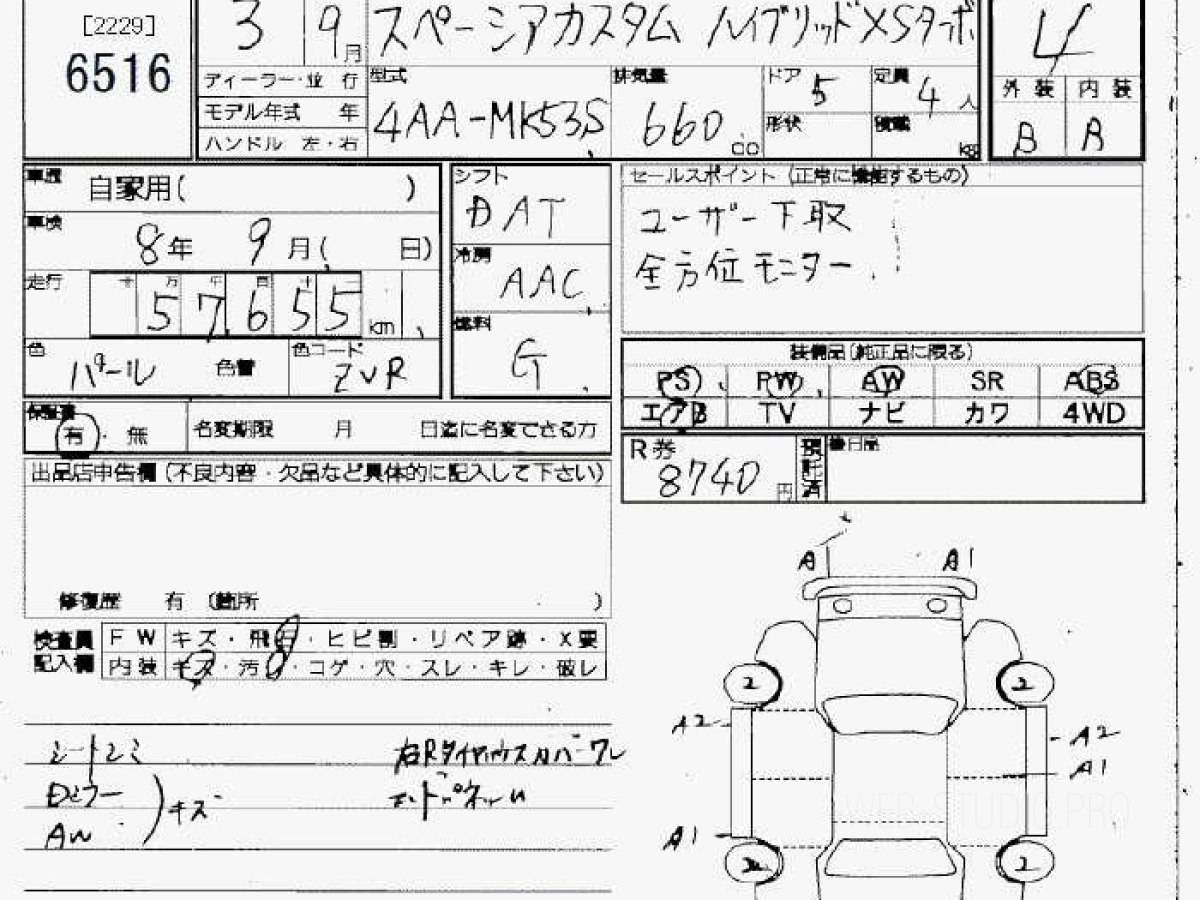 [2229]
6516
3 9月
スペーシアカスタム ハイブリッドXSターボ
4
ディーラー・並 行
モデル年式 年
ハンドル 左・右
型式
4AA-MK53S
排気量
660 cc
ドア 5
形状
定員 4 人
積載 kg
外装 内装
B B
車歴 自家用( )
車検 8年 9月( 日)
走行 十 万 千 百 十 一
57,655 km
色 パール 色替
色コード ZVR
シフト
DAT
冷房
AAC
燃料
G
セールスポイント (正常に機能するもの)
ユーザー下取
全方位モニター
装備品(純正品に限る)
PS PW AW SR ABS
エアB TV ナビ カワ 4WD
保証書
有・無
名変期限 月 日迄に名変できる方
R券 8740 円
預託済
出品店申告欄(不良内容・欠品など具体的に記入して下さい)
修復歴 有 (箇所 )
検査員記入欄
FW キズ・飛石・ヒビ割・リペア跡・X要
内装 キズ・汚・コゲ・穴・スレ・キレ・破レ
シートシミ
Dミラー
AW
キズ
右Rタイヤハウスカバーワレ
A A1
2 2
A2 A2
A1
A1
2 2
WEB STUDIO PRO